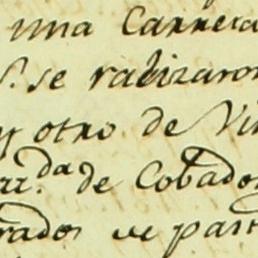 una Carreta
S. se ratizaron
y otro de Vi
rr.da de Cobado
rados ve part